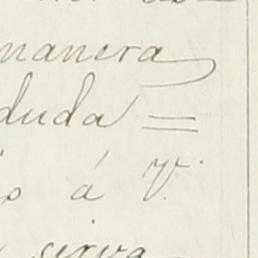 manera
duda =
á V.
sirva